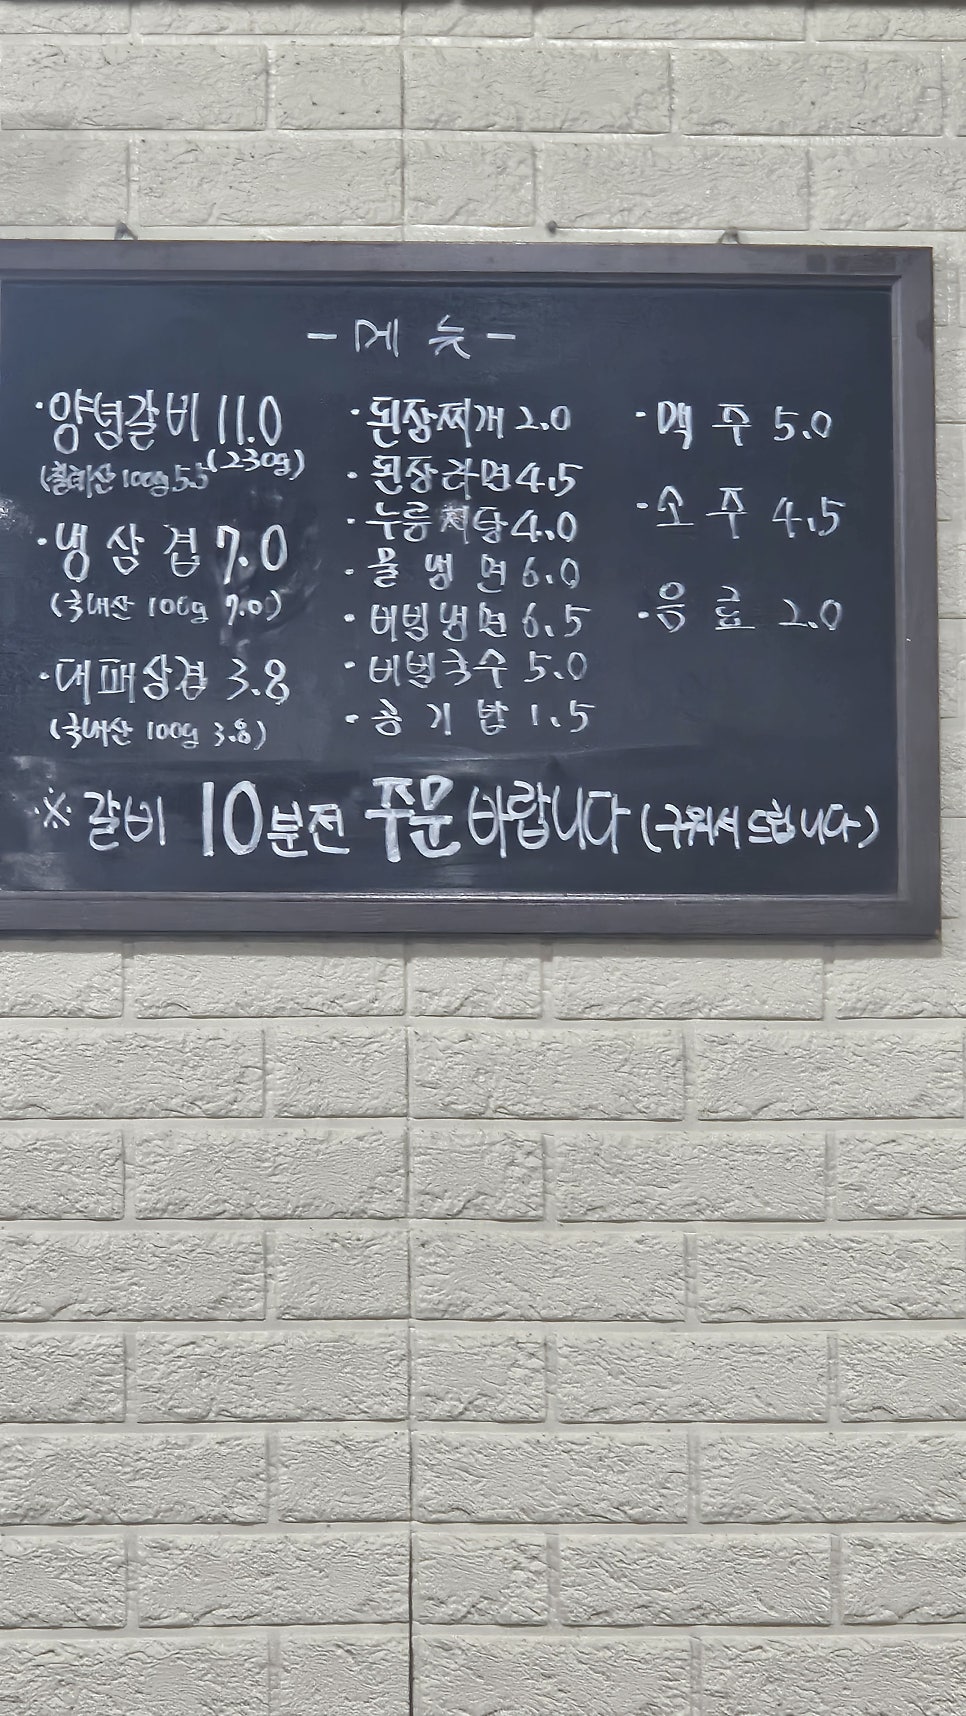 - 메뉴 -
· 양념갈비 11.0
(230g)
(칠레산 100g 5.5
· 냉삼겹 7.0
(국내산 100g 7.0)
· 대패삼겹 3.8
(국내산 100g 3.8)
· 된장찌개 2.0
· 된장라면 4.5
· 누룽지탕 4.0
· 물냉면 6.0
· 비빔냉면 6.5
· 비빔국수 5.0
· 공기밥 1.5
· 맥주 5.0
· 소주 4.5
· 음료 2.0
※ 갈비 10분전 주문 바랍니다 (구워서 드립니다)